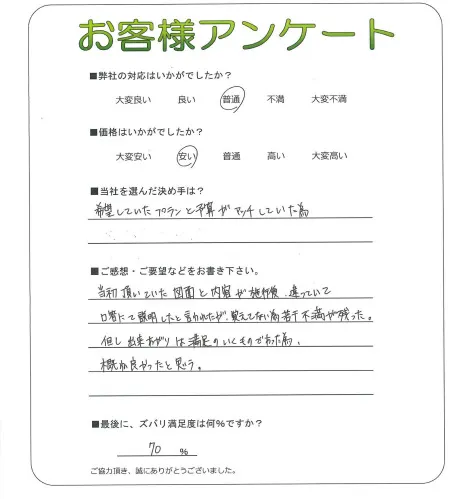 お客様アンケート
■弊社の対応はいかがでしたか?
大変良い 良い 普通 不満 大変不満
■価格はいかがでしたか?
大変安い 安い 普通 高い 大変高い
■当社を選んだ決め手は?
希望していたプランと予算がマッチしていた為
■ご感想・ご要望などをお書き下さい。
当初頂いていた図面と内容が施行後、違っていて
口答にて説明したと言われたが、覚えてない為若干不満が残った。
但し出来あがりは満足のいくものであった為、
概ね良かったと思う。
■最後に、ズバリ満足度は何%ですか?
70 %
ご協力頂き、誠にありがとうございました。